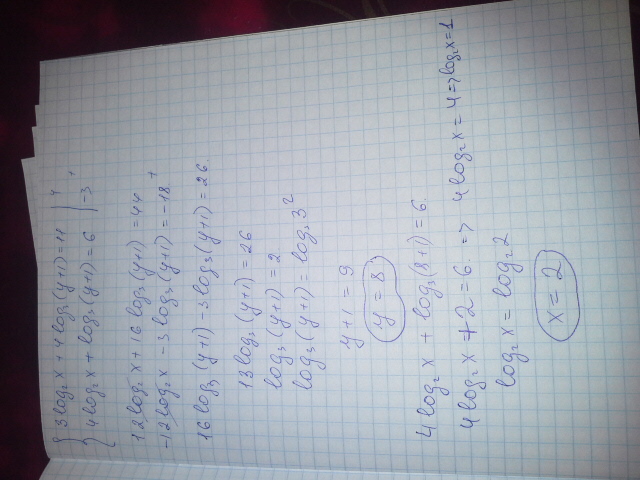 { 3log₂x + 4log₃(y+1) = 11 | 4
4log₂x + log₃(y+1) = 6 | -3 +
12log₂x + 16log₃(y+1) = 44
-12log₂x - 3log₃(y+1) = -18 +
16log₃(y+1) - 3log₃(y+1) = 26.
13log₃(y+1) = 26
log₃(y+1) = 2
log₃(y+1) = log₃3²
y+1 = 9
y = 8
4log₂x + log₃(8+1) = 6.
4log₂x + 2 = 6. => 4log₂x = 4 => log₂x = 1
log₂x = log₂2
x = 2